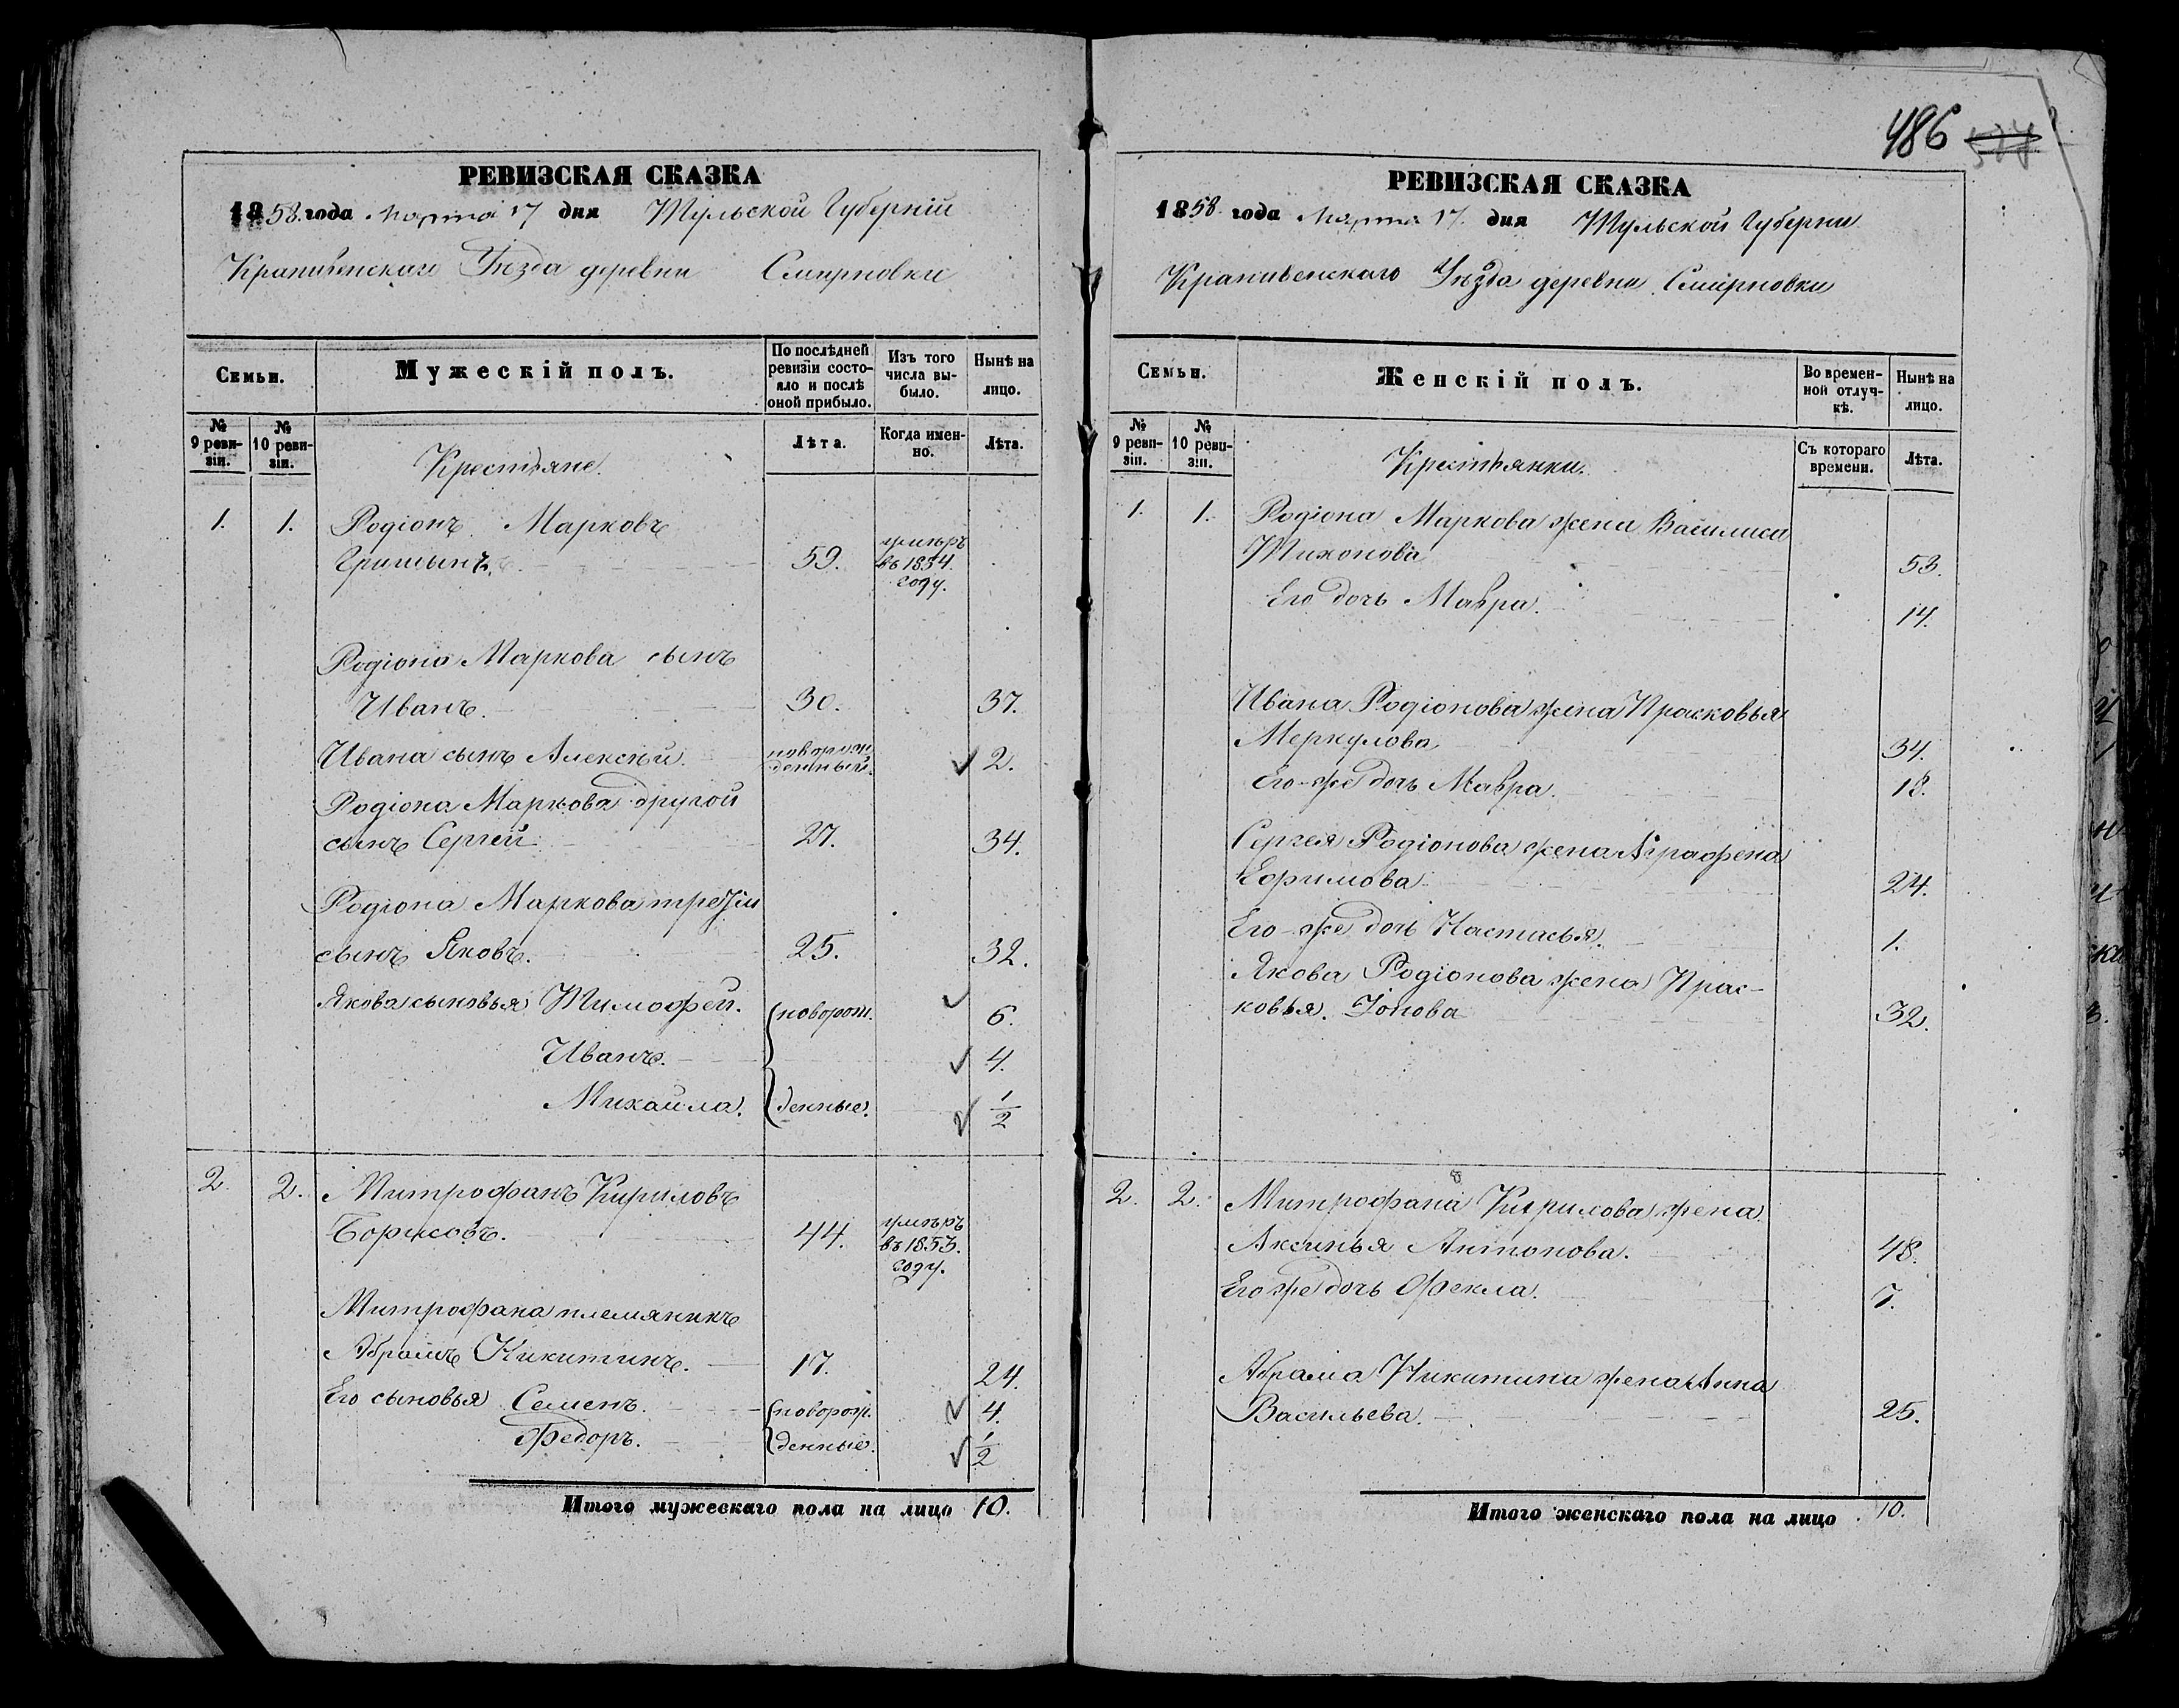 РЕВИЗСКАЯ СКАЗКА
1858. года Марта 17 дня Тульской Губернiй
Крапивенскаго Уѣзда деревни Смирновки
Семьи.
Мужескiй полъ.
По послѣдней ревизiи состо-
яло и послѣ оной прибыло.
Изъ того числа вы-
было.
Нынѣ на лицо.
№ 9 реви-
зiи.
№ 10 реви-
зiи.
Крестьяне.
Лѣта.
Когда имен-
но.
Лѣта.
1. 1. Родiонъ Марковъ
Гришинъ. 59. умѣръ въ 1854. году.
Родiона Маркова сынъ
Иванъ. 30. 37.
Ивана сынъ Алексѣй. новорож-
денный. 2.
Родiона Маркова другой
сынъ Сергей 27. 34.
Родiона Маркова третiй
сынъ Яковъ. 25. 32.
Якова сыновья Тимофей. новорож. 6.
Иванъ. 4.
Михайла. денные. 1/2
2. 2. Митрофанъ Кириловъ
Борисовъ. 44. умѣръ въ 1853. году.
Митрофана племяникъ
Абрамъ Никитинъ. 17. 24.
Его сыновья Семенъ. новорож. 4.
Федоръ. денные. 1/2
Итого мужескаго пола на лицо 10.
486
РЕВИЗСКАЯ СКАЗКА
1858 года Марта 17. дня Тульской Губерни
Крапивенскаго Уѣзда деревни Смирновки
Семьи.
Женскiй полъ.
Во времен-
ной отлуч-
кѣ.
Нынѣ на лицо.
№ 9 реви-
зiи.
№ 10 реви-
зiи.
Крестьянки.
Съ котораго времени.
Лѣта.
1. 1. Родiона Маркова жена Василиса
Тихонова 53.
Его дочь Мавра. 14.
Ивана Родiонова жена Прасковья
Меркулова 34.
Его-же дочь Мавра. 18.
Сергея Родiонова жена Аграфена
Ефимова 24.
Его-же дочь Настасья. 1.
Якова Родiонова жена Прас-
ковья. Iонова 32.
2. 2. Митрофана Кирилова жена
Аксинья Антонова. 48.
Его же дочь Фекла. 7.
Абрама Никитина жена Анна
Васильева. 25.
Итого женскаго пола на лицо 10.